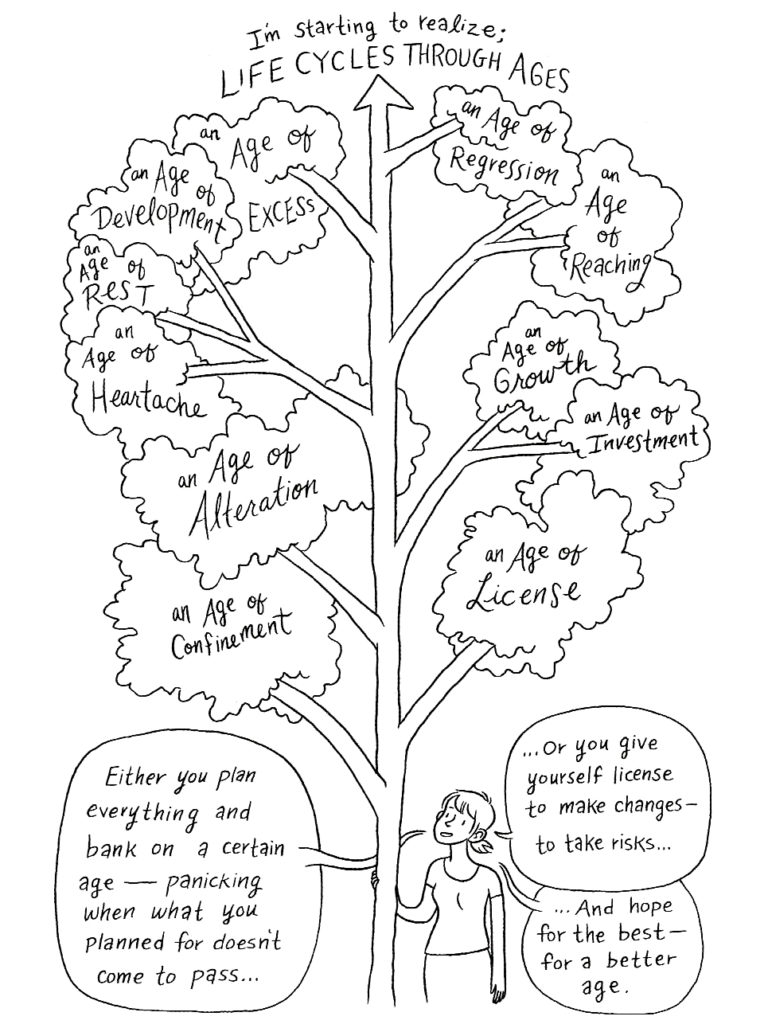 I'm starting to realize;
LIFE CYCLES THROUGH AGES
an
Age of
EXCESS
an Age of
Regression
an Age
of
Development
an
Age
of
Reaching
an
Age of
REST
an
Age of
Heartache
an
Age of
Growth
an Age of
Investment
an Age of
Alteration
an Age of
License
an Age of
Confinement
Either you plan
everything and
bank on a certain
age — panicking
when what you
planned for doesn't
come to pass...
...Or you give
yourself license
to make changes—
to take risks...
...And hope
for the best—
for a better
age.